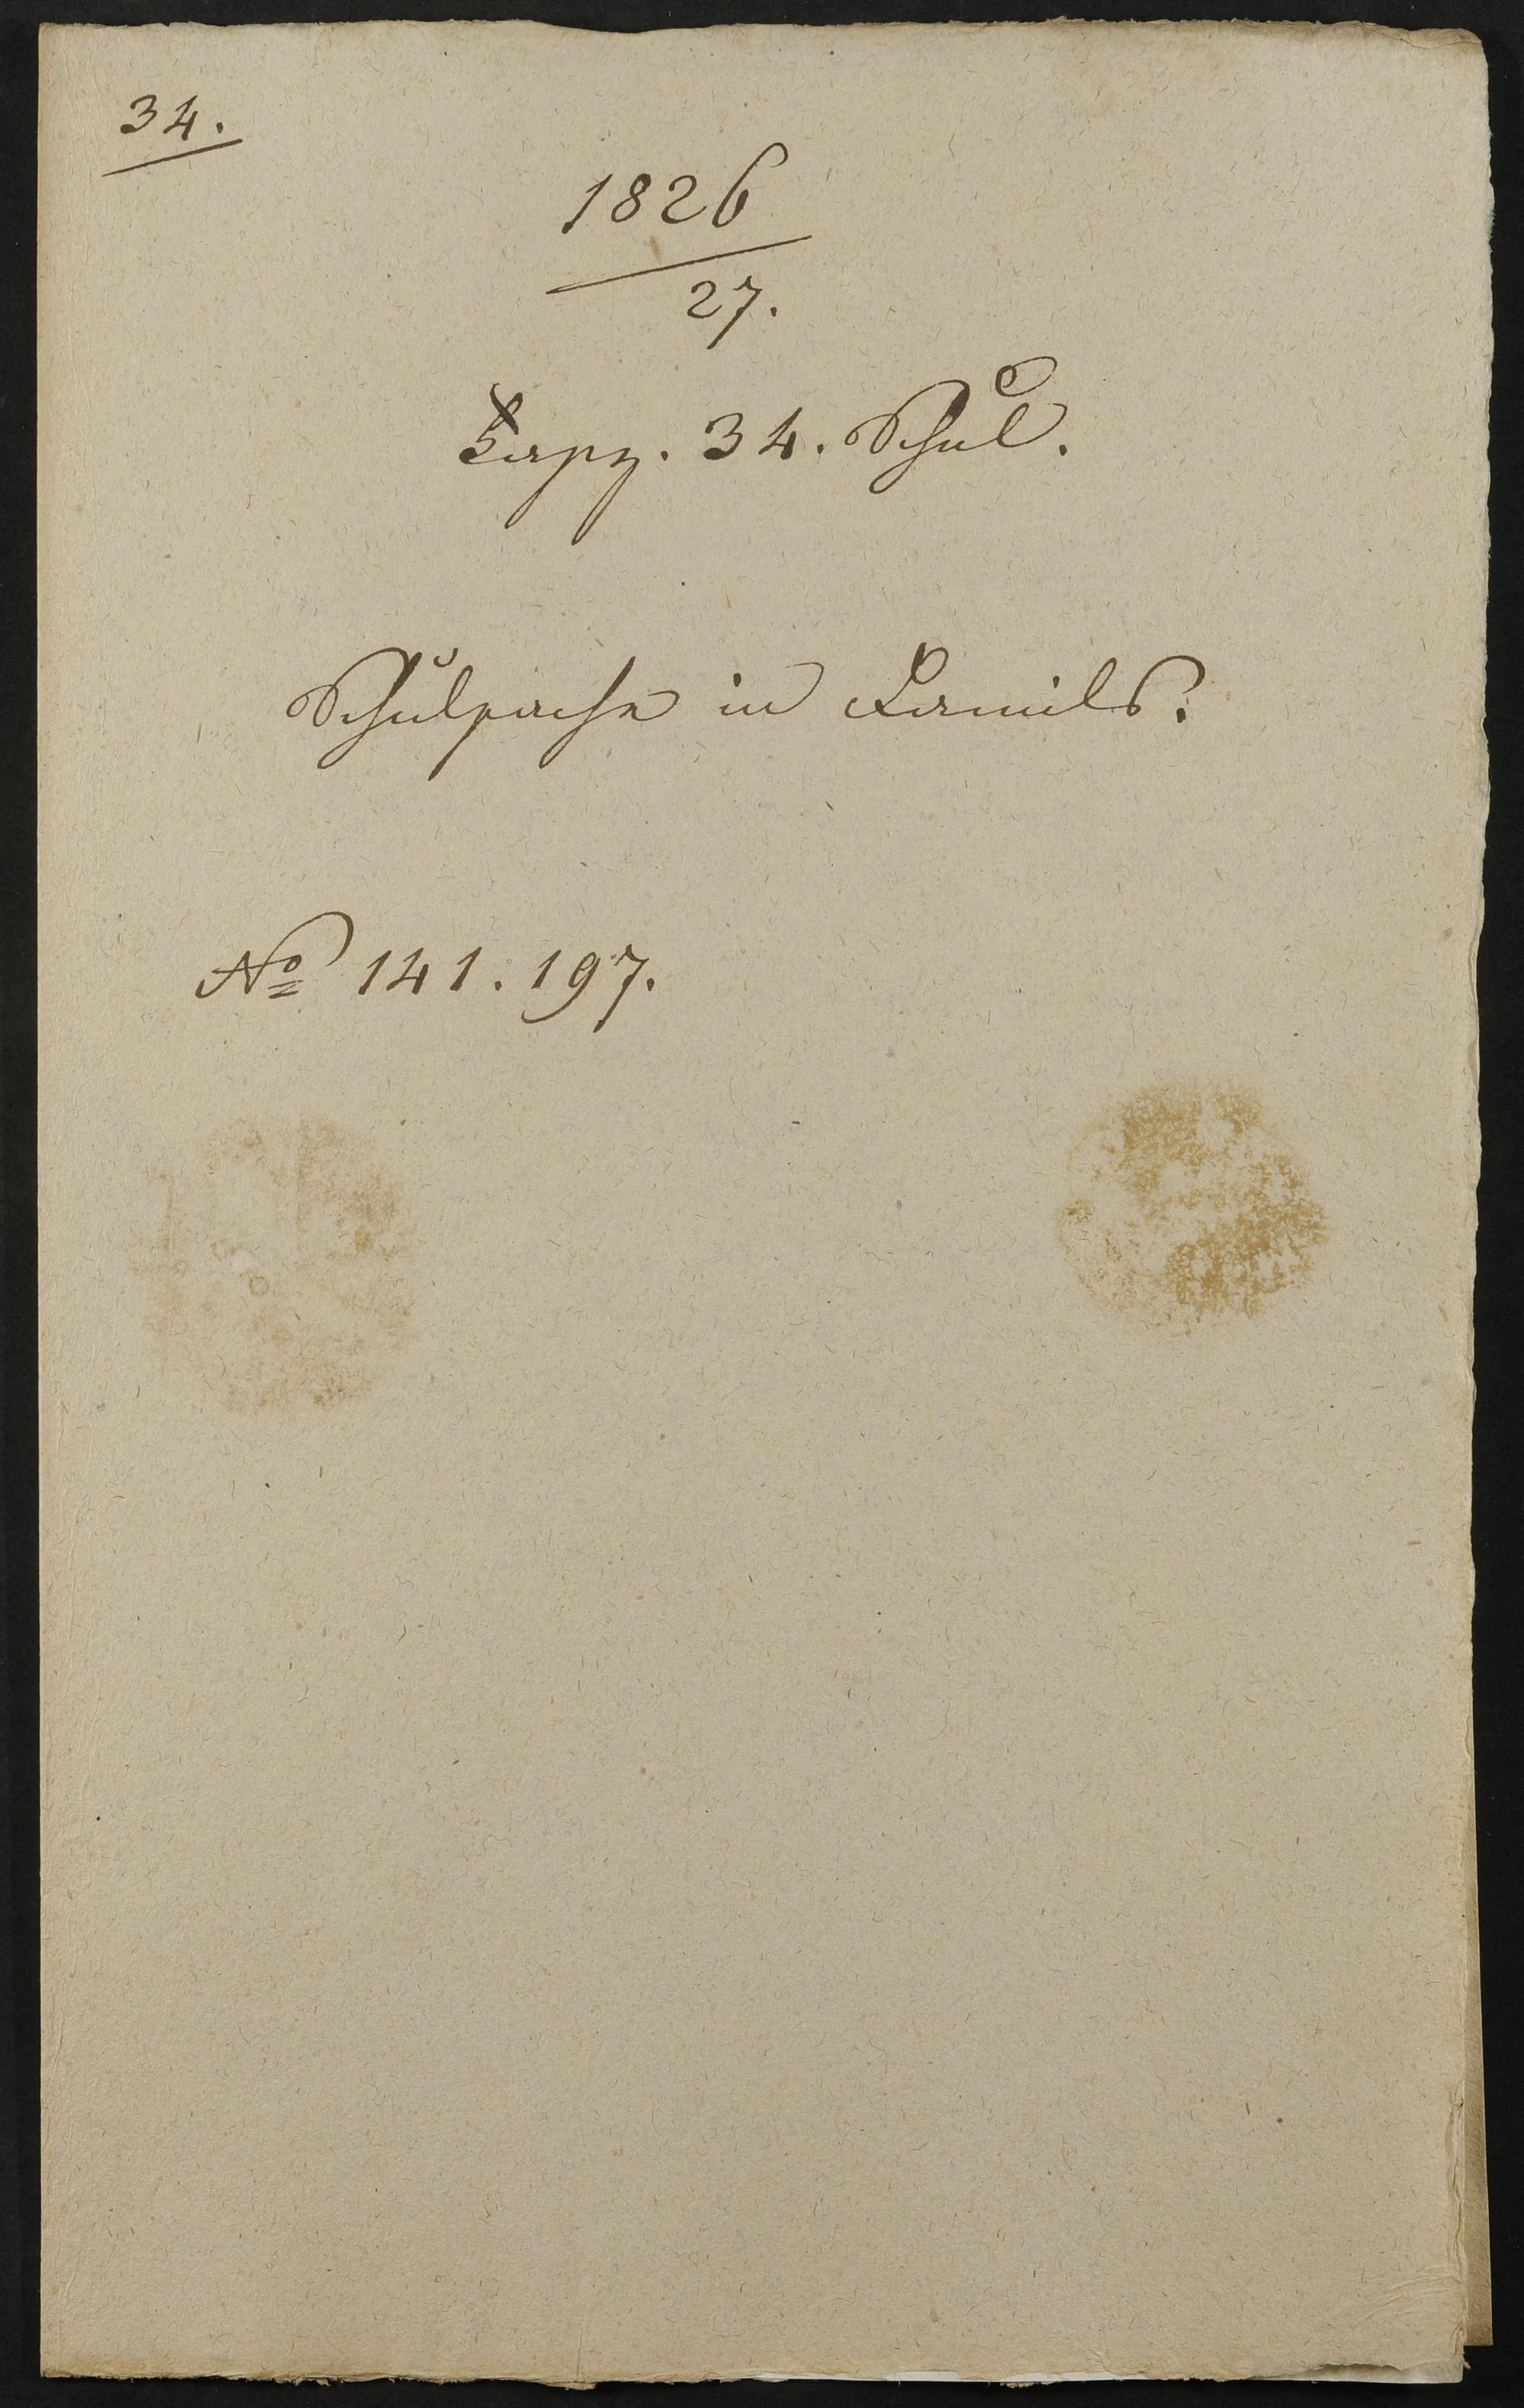 34.
1826
27.
Fasz. 34. Schul.
Schulsache in Lamils.
No 141. 197.